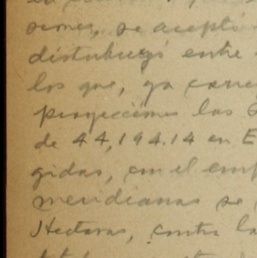 siones, se aceptó
distribuyó entre
los que, ya
proyecciones las
de 44,194.14 en E
gidas, con el emp
meridianas se
Hectaras, contra la